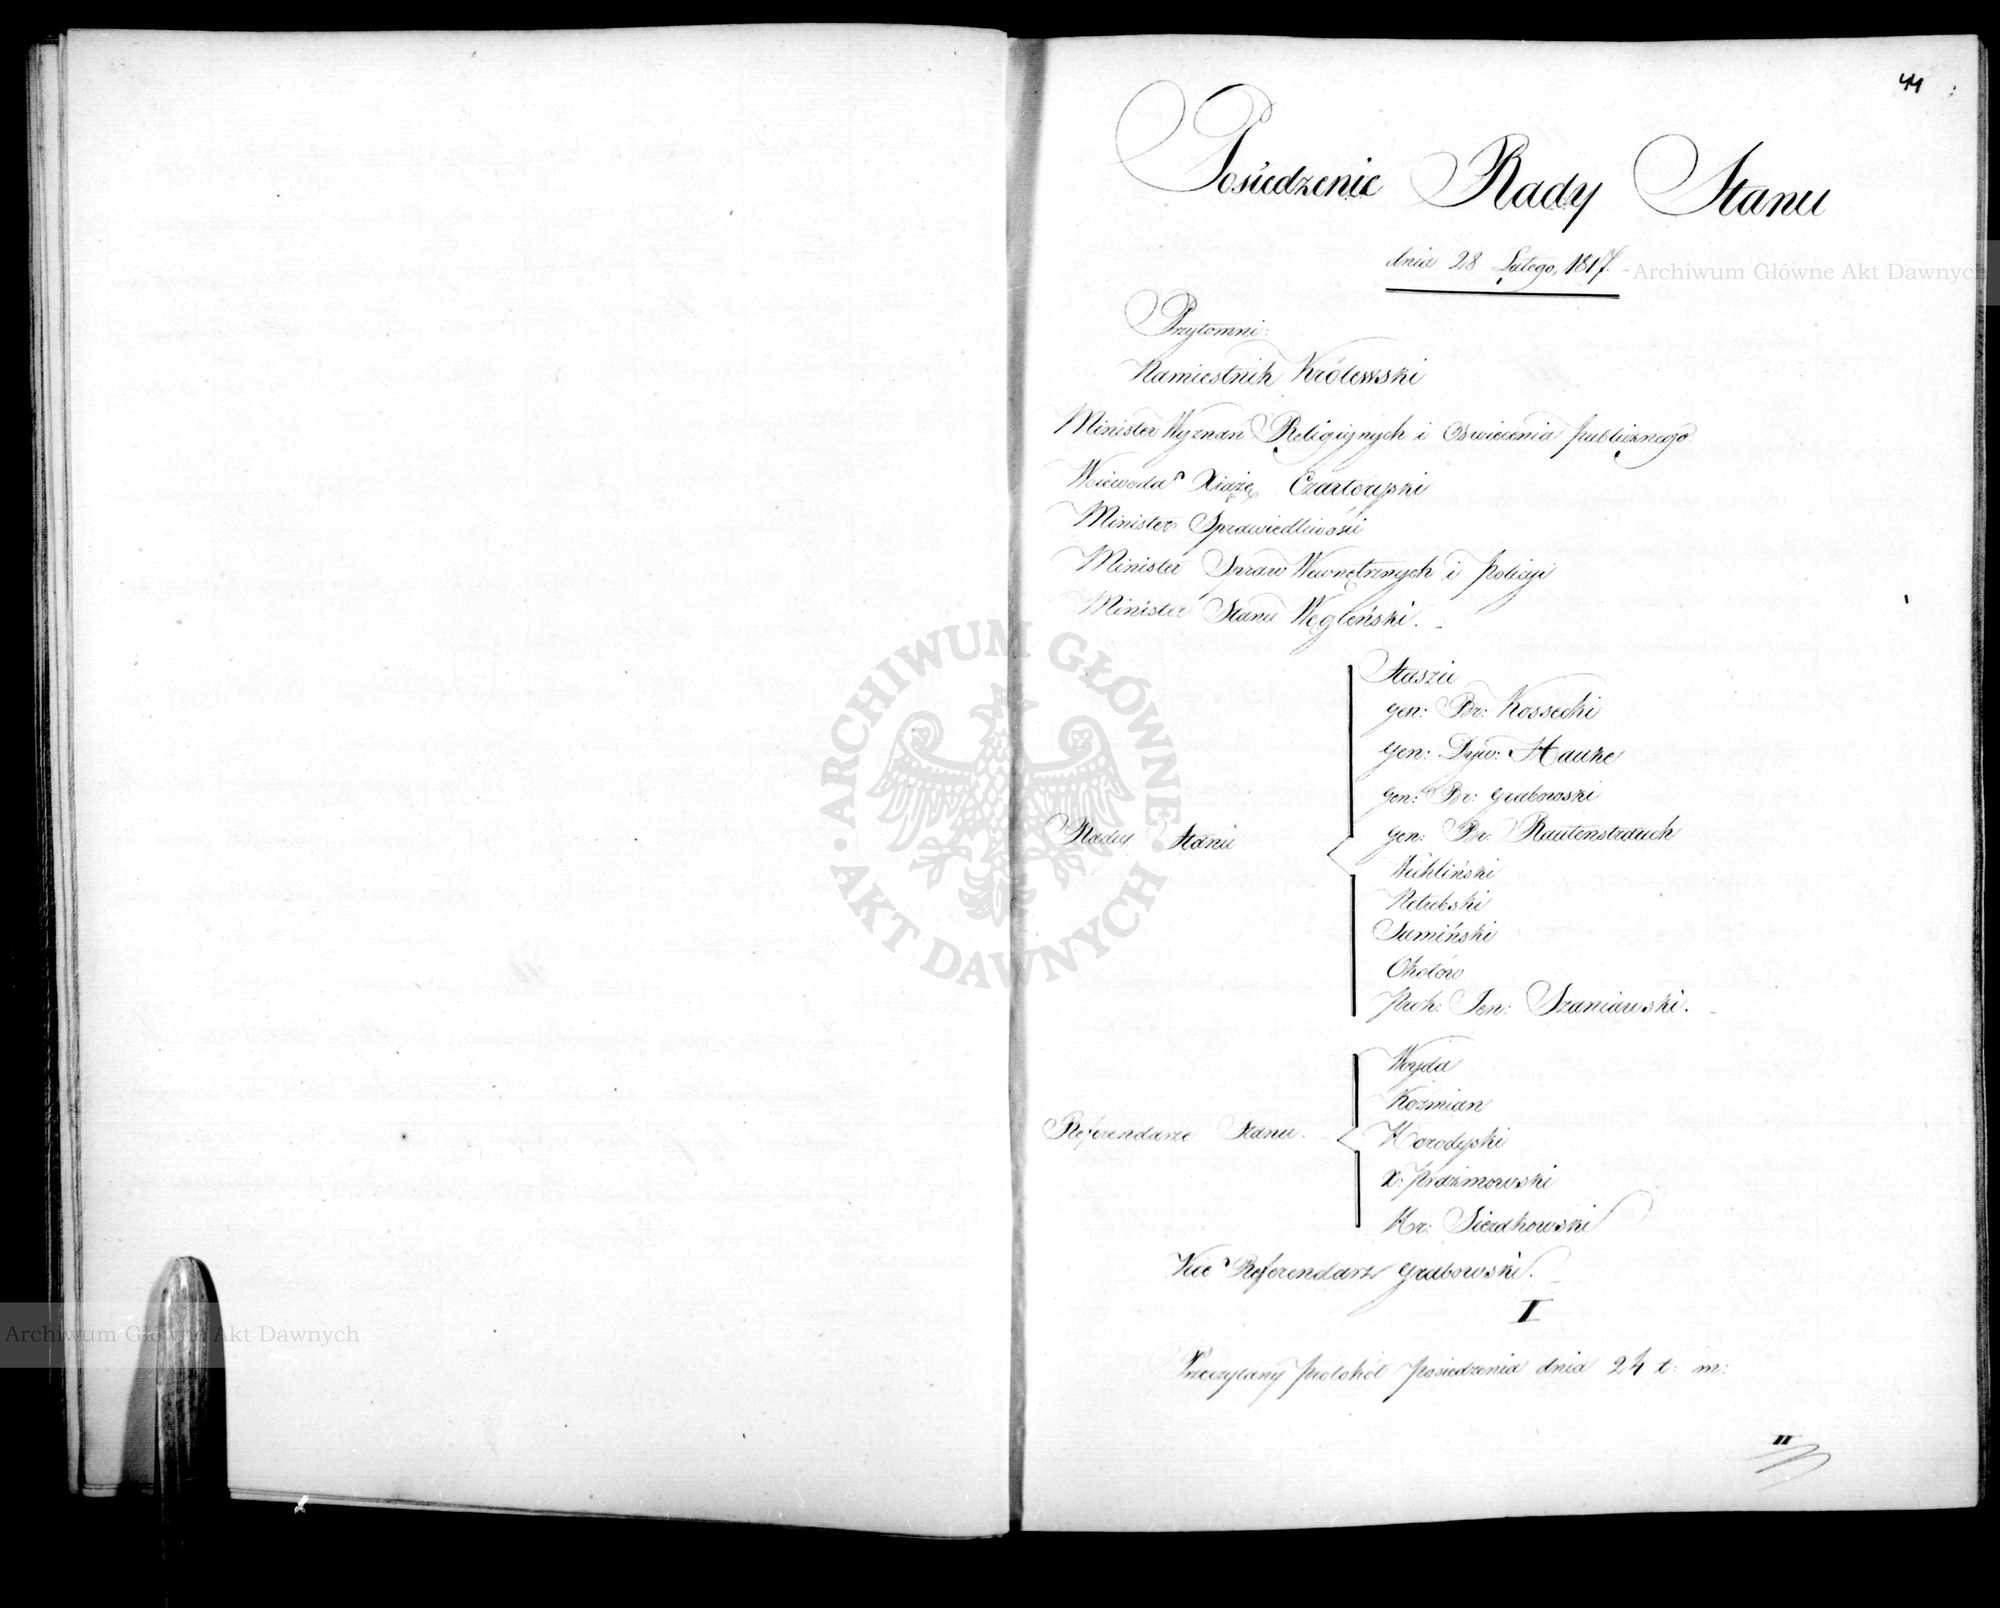 44
Posiedzenie Rady Stanu
dnia 28 Lutego, 1817. -
Archiwum Główne Akt Dawnych
Przytomni:
Namiestnik Królewski
Minister Wyznań Religijnych i Oświecenia publicznego.
Woiewoda Xiążę Czartoryski
Minister Sprawiedliwości
Minister Spraw Wewnętrznych i Policyi
Minister Stanu Węgleński. -
ARCHIWUM GŁÓWNE · AKT DAWNYCH ·
Radcy Stanu
Staszic
gen: Br: Kossecki
gen: Dyw: Hauke
gen: Br: Grabowski
gen: Br: Rautenstrauch
Wichliński
Netrebski
Sumiński
Okołow
Prok: Jen: Szaniawski. -
Referendarze Stanu.
Woyda
Kozmian
Horodyski
X: Prażmowski
Hr: Sierakowski
Vice Referendarz Grabowski. -
I
Przeczytany protokół posiedzenia dnia 24 t: m:
II
Archiwum Główne Akt Dawnych